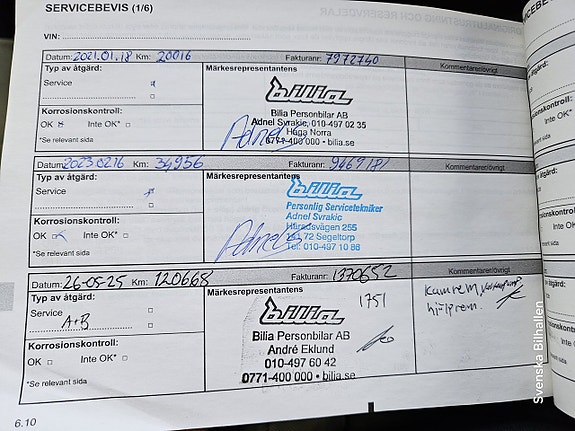 SERVICEBEVIS (1/6)
VIN:
Datum: 2021.01.18 Km: 20016 Fakturanr: 7972740
Typ av åtgärd: Märkesrepresentantens Kommentarer/övrigt
Service
bilia
Bilia Personbilar AB
Korrosionskontroll: Adnel Svrakic, 010-497 02 35
OK Inte OK* Adnel Haga Norra
*Se relevant sida 0771-400 000 • bilia.se
Datum: 20230216 Km: 34956 Fakturanr: 9469181
Typ av åtgärd: Märkesrepresentantens Kommentarer/övrigt
Service bilia
Personlig Servicetekniker
Adnel Svrakic
Korrosionskontroll: Häradsvägen 255
OK Inte OK* Adnel 141 72 Segeltorp
*Se relevant sida Tel: 010-497 10 88
Datum: 26-05-25 Km: 120668 Fakturanr: 1370652
Typ av åtgärd: Märkesrepresentantens Kommentarer/övrigt
Service A+B bilia 1751 Kamrem,
hjälprem.
Bilia Personbilar AB
Korrosionskontroll: André Eklund
OK Inte OK* 010-497 60 42
*Se relevant sida 0771-400 000 • bilia.se
6.10
Svenska Bilhallen